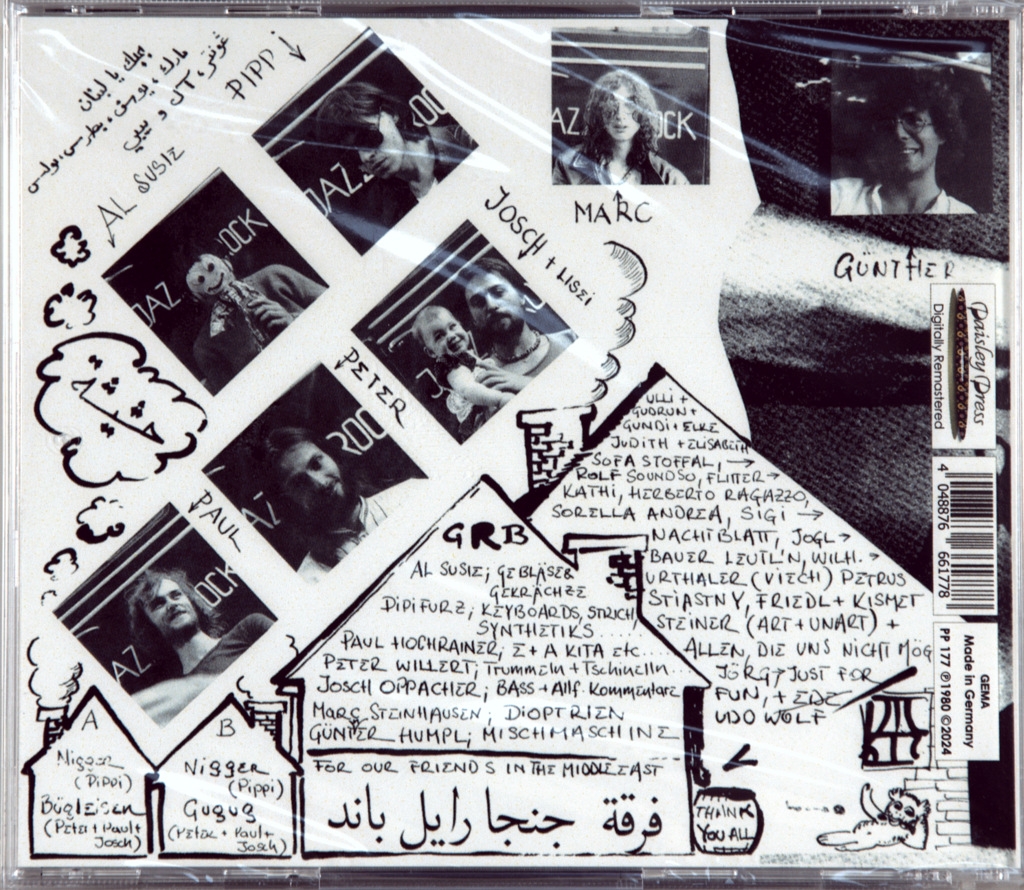 بيبك يا لبنان
PIPPI
AL SUSIE
JAZ
ROCK
JAZ
OCK
MARC
AZ
OCK
GÜNTHER
JOSCH + LISEI
PETER
AZ
ROC
PAUL
AZ
OCK
ULLI +
GUDRUN +
GUNDI + ELKE
JUDITH + ELISABETH
SOFA STOFFAL, →
ROLF SOUNDSO, FLITTER →
KATHI, HERBERTO RAGAZZO,
SORELLA ANDREA, SIGI →
NACHTBLATT, JOGL →
BAUER LEUTL'N, WILH. →
URTHALER (VIECH) PETRUS
STIASTNY, FRIEDL + KISMET
STEINER (ART + UNART) +
ALLEN, DIE UNS NICHT MÖG
JÖRG → JUST FOR
FUN, + EDE
UDO WOLF
GRB
AL SUSIE; GEBLÄSE &
GEKRÄCHZE
DIPIFURZ; KEYBOARDS, STRICH,
SYNTHETIKS.....
PAUL HOCHRAINER; E + A KITA etc....
PETER WILLERT; Trummeln + Tschinelln...
JOSCH OPPACHER; BASS + Allf. Kommentare
MARC STEINHAUSEN; DIOPTRIEN
GÜNTER HUMPL; MISCHMASCHINE
FOR OUR FRIENDS IN THE MIDDLE EAST
فرقة جنجا رايل باند
A
Nigger
(Pippi)
Bügleisen
(Peter + Paul +
Josch)
B
Nigger
(Pippi)
Gugug
(Peter + Paul +
Josch)
THANK
YOU ALL
Paisley Press
Digitally Remastered
4 048876 661778
GEMA
Made in Germany
PP 177 ℗1980 ©2024